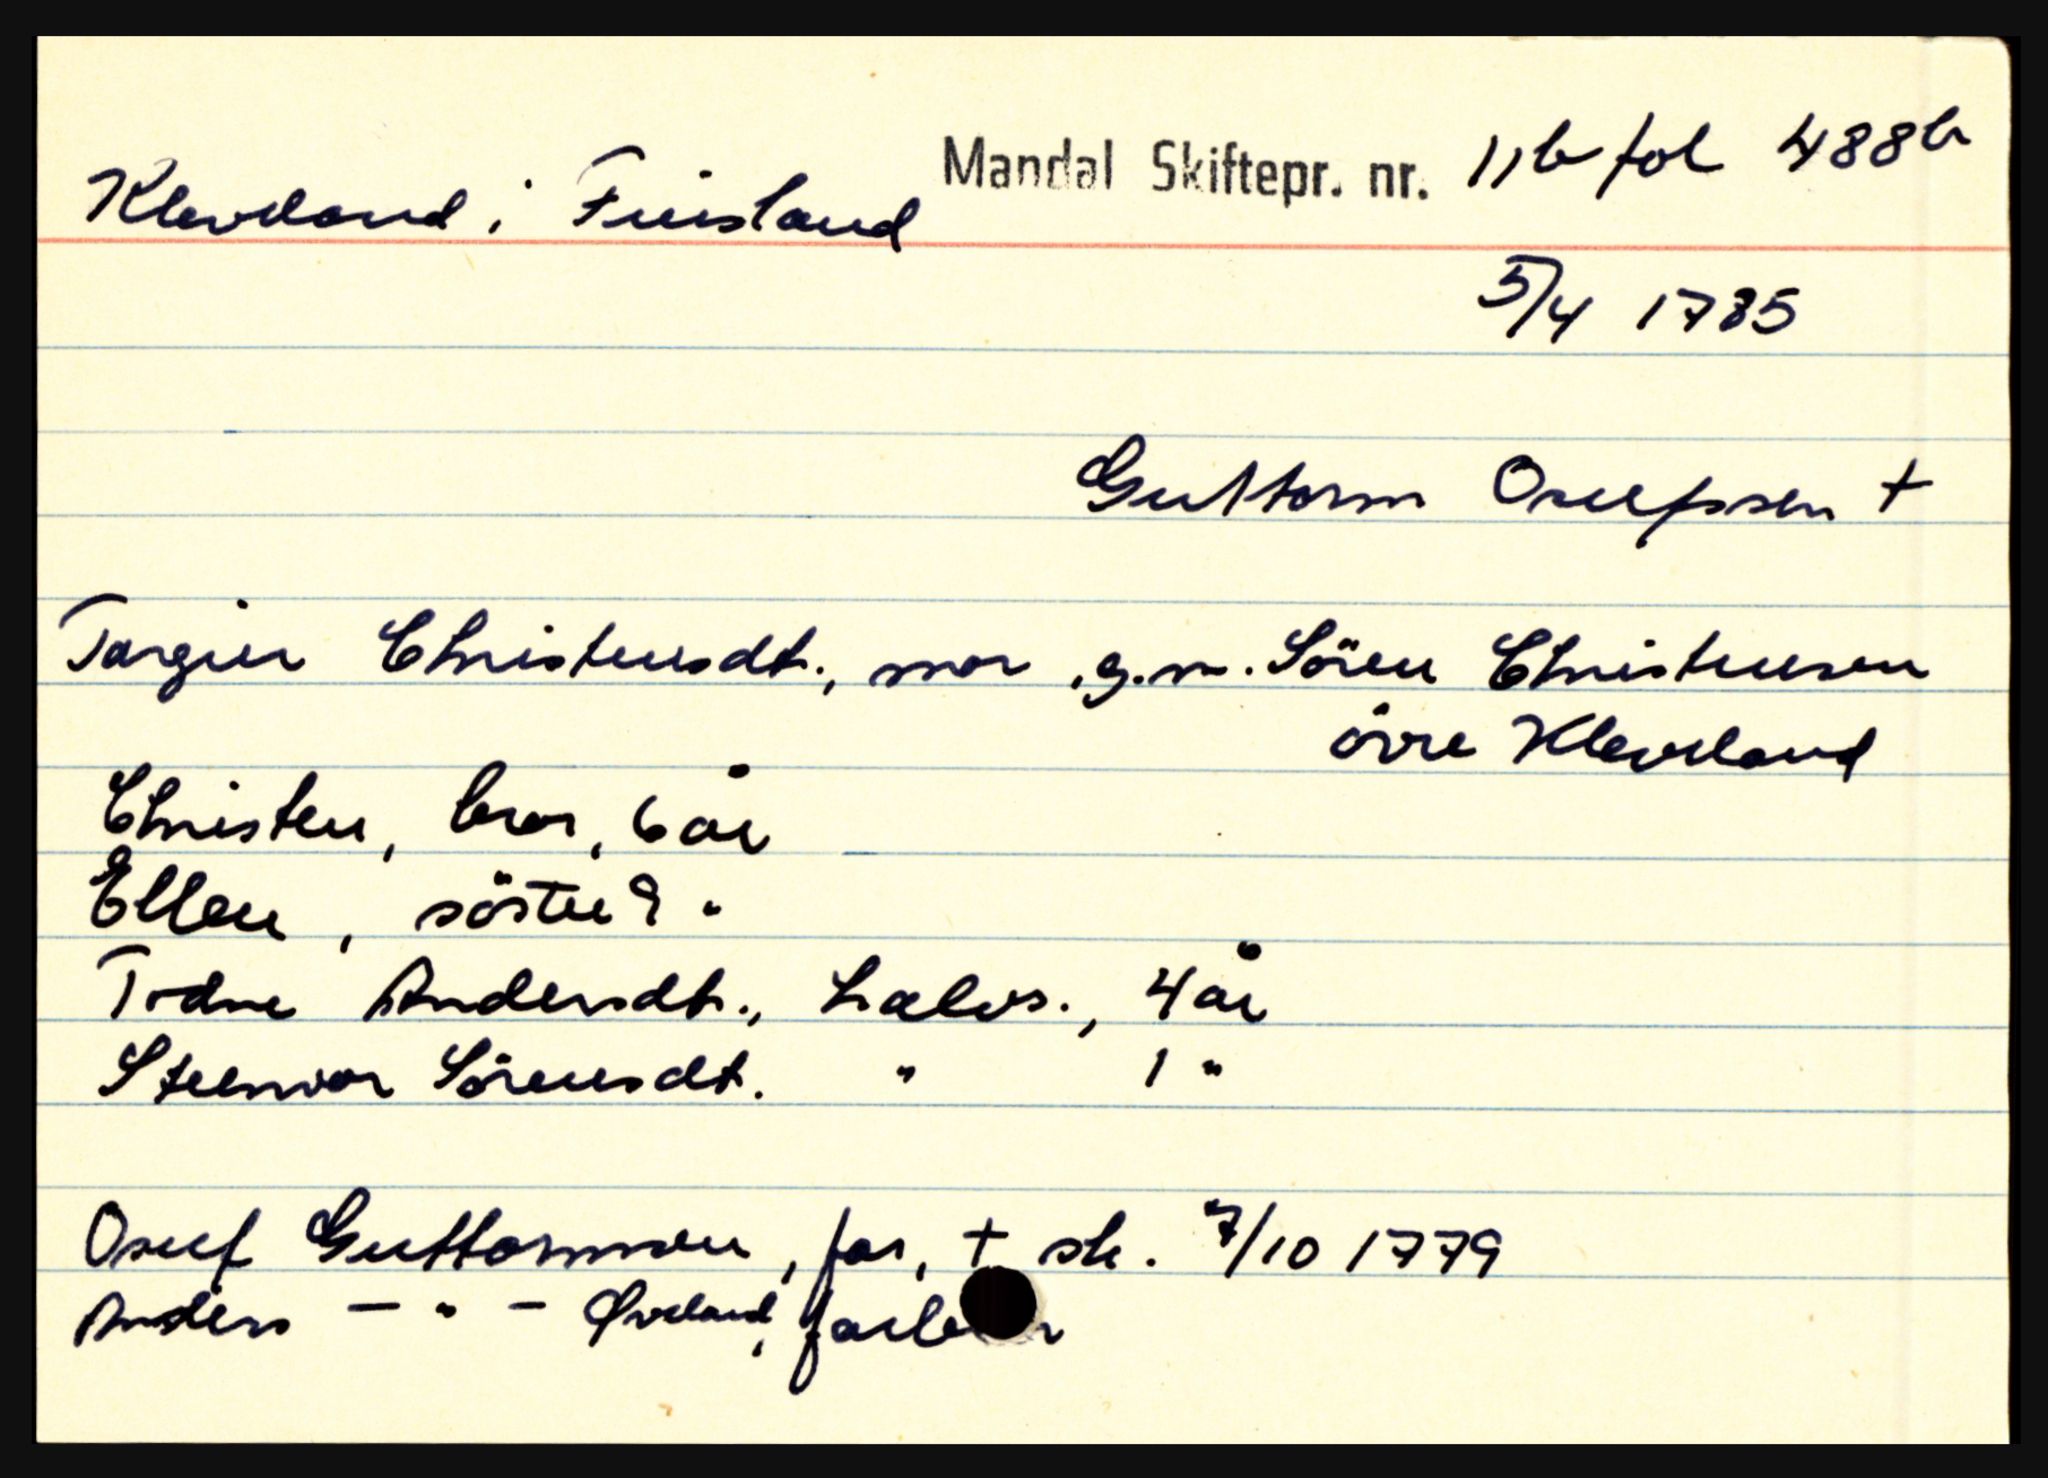 Kleveland i Finsland Mandal Skiftepr. nr. 11b fol 488b
5/4 1785
Guttorm Osefssen +
Torgier Christensdt., mor, g.m. Sören Christensen
övre Kleveland
Christen, bror, 6 år
Ellen, söster 9 "
Todne Andersdt., halvs., 4 år
Steenvor Sörensdt. " 1 "
Osuf Guttormsen, far, + sk. 7/10 1779
Anders — " — Øvland, farbror